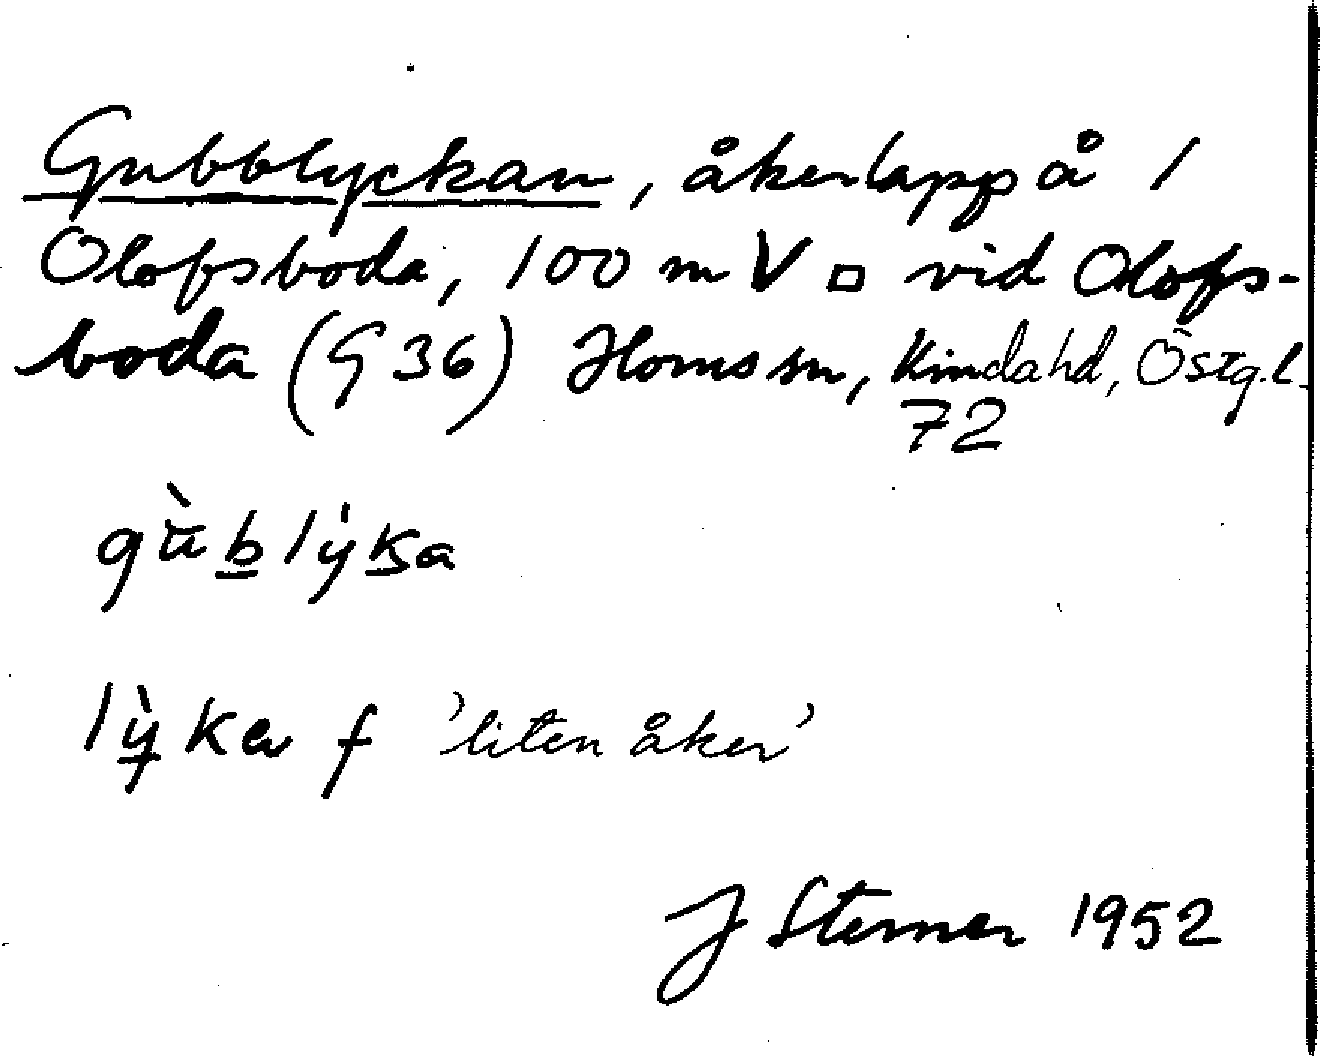 Gubblyckan, åkerlapp å 1
Olofsboda, 100 m V □ vid Olofs-
boda (G 36) Horns sn, Kinda hd, Östg.l.
72
gὺb̲lẏk̲a
lỳ̲ka f 'liten åker'
J Sterner 1952